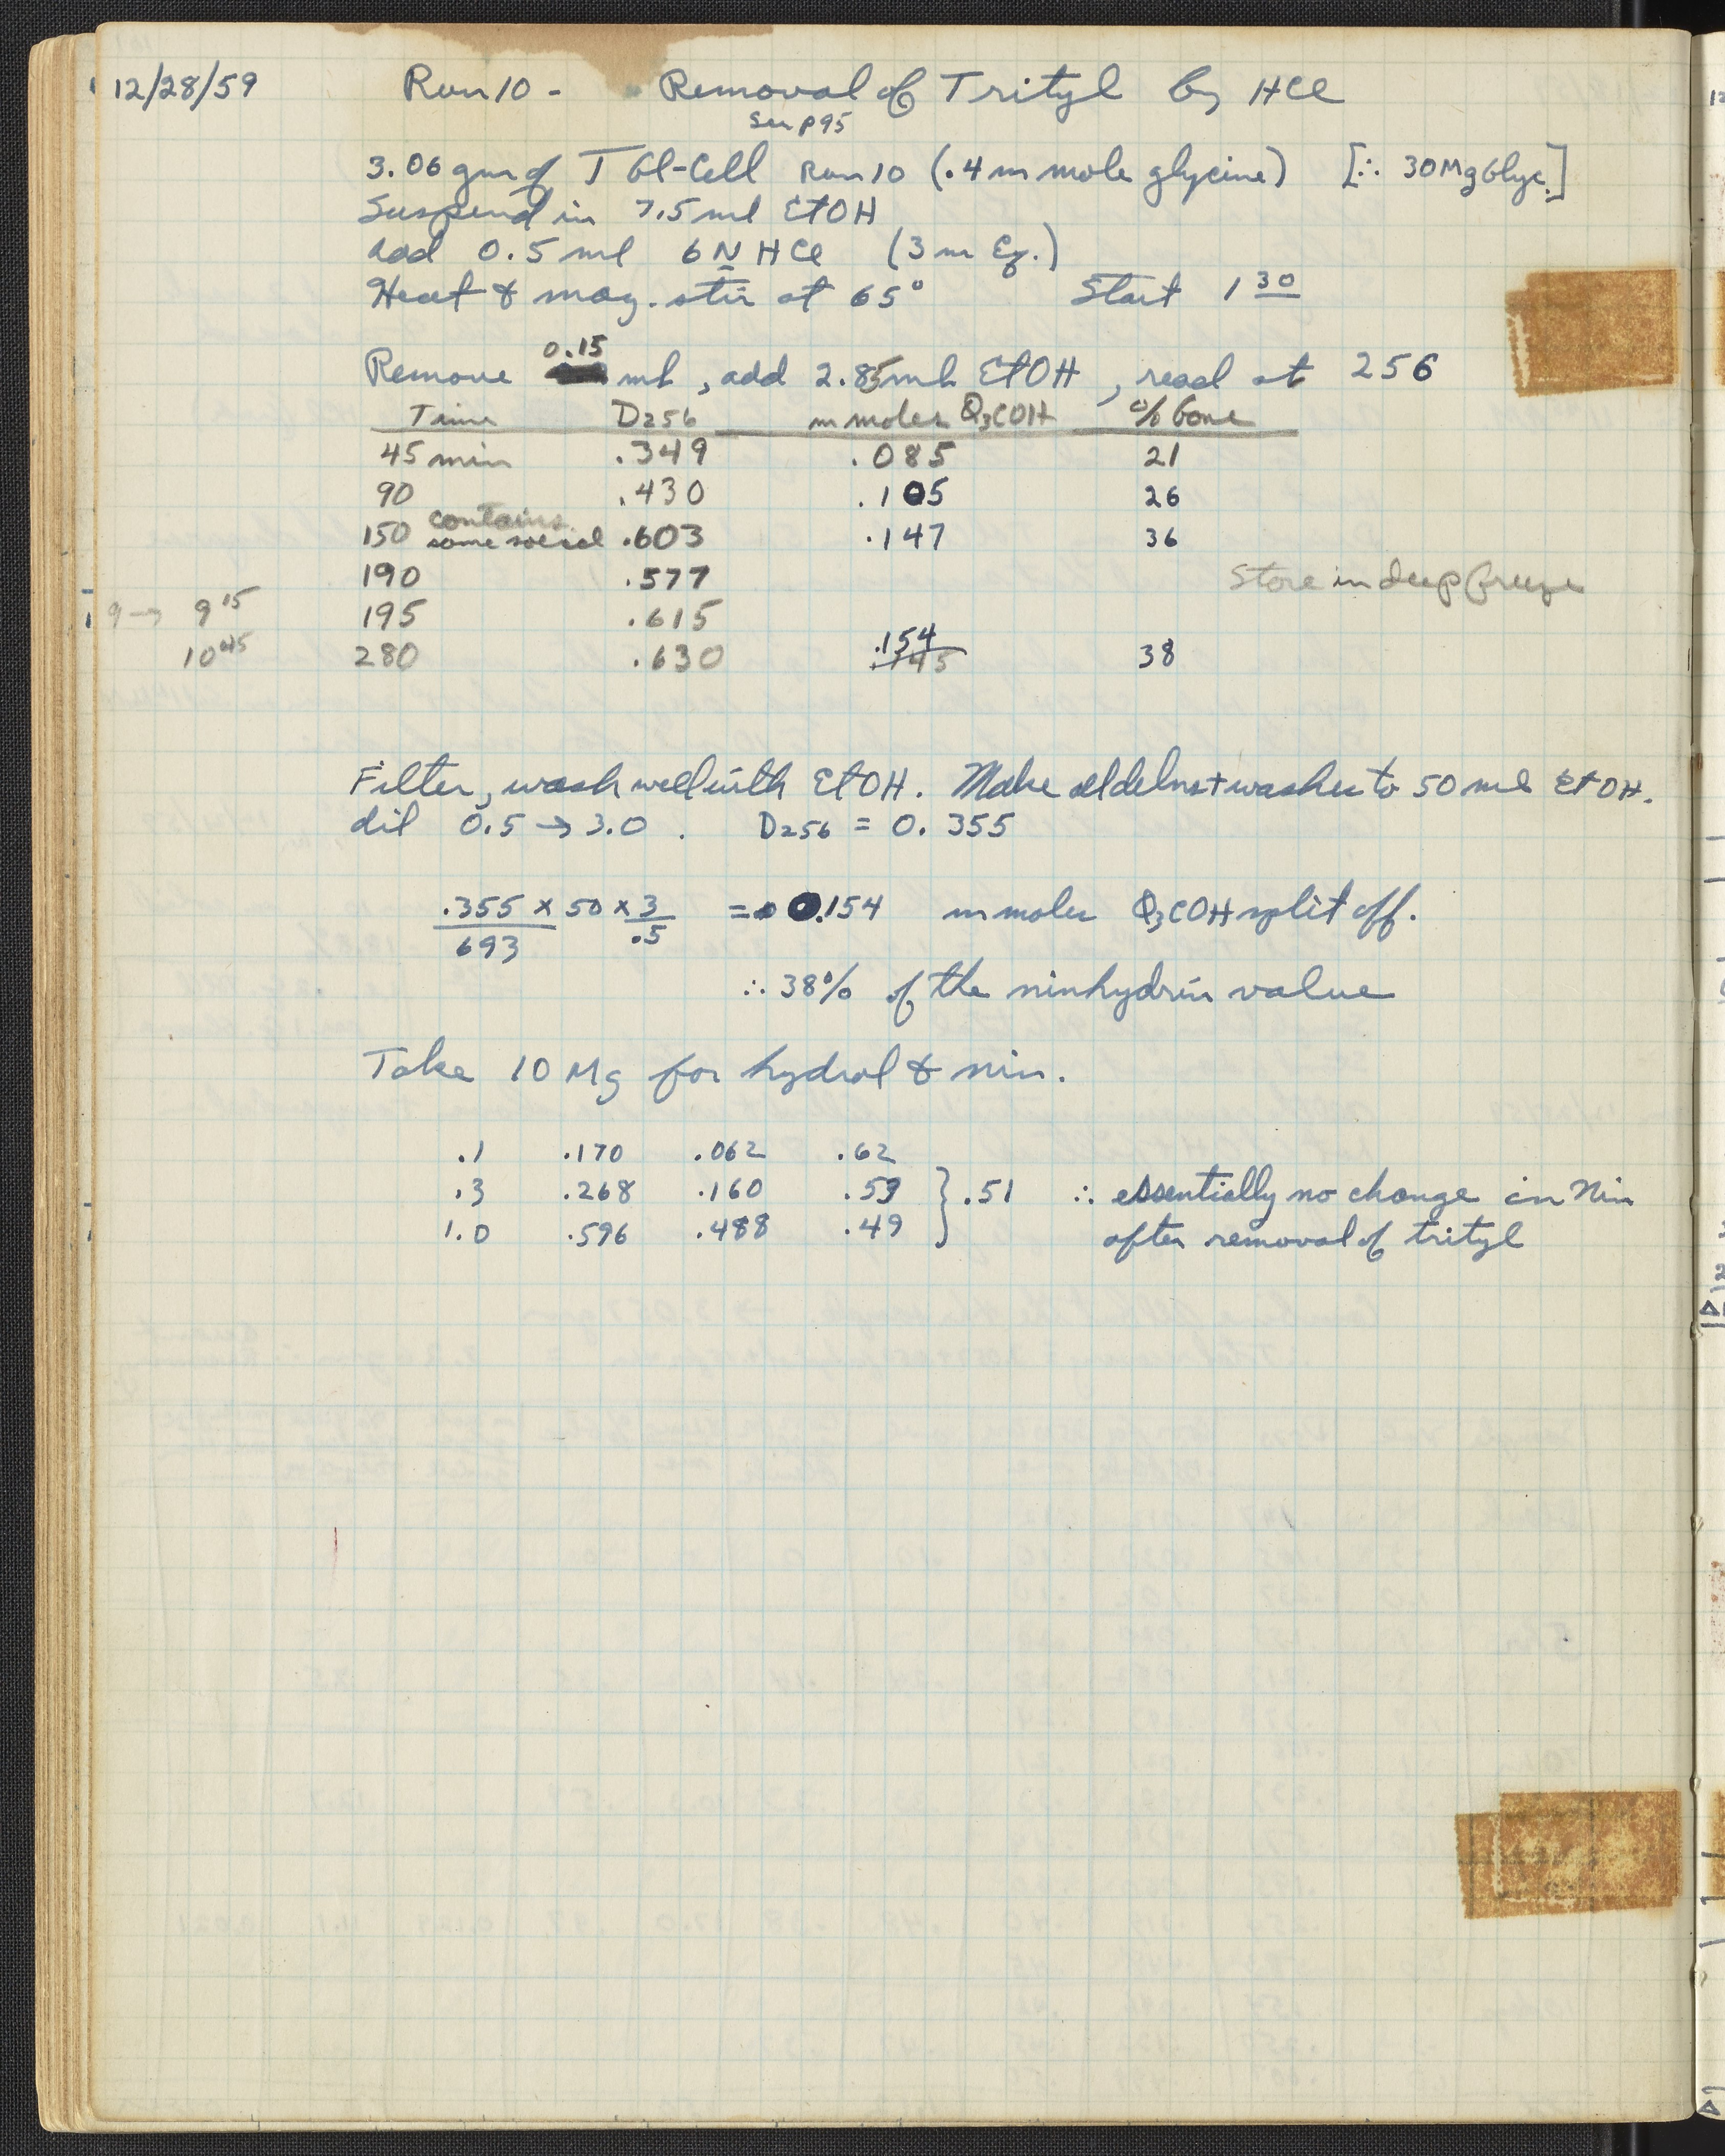 12/28/59 Run 10 - Removal of Trityl by HCl
See p 95
3.06 gm of T Gl-Cell Run 10 (.4 m mole glycine) [∴ 30 Mg Glyc.]
Suspend in 7.5 ml EtOH
add 0.5 ml 6 N HCl (3 m Eq.)
Heat & mag. stir at 65° Start 1 30
0.15
Remove ml, add 2.85 ml EtOH, read at 256
Time D256 m moles Q3COH % Gone
45 min .349 .085 21
90 .430 .105 26
contains
150 some solid .603 .147 36
190 .577 Store in deep freeze
9 → 9 15 195 .615
.154
10 45 280 .630 .145 38
Filter, wash well with EtOH. Make + washes to 50 ml EtOH.
dil 0.5 → 3.0. D256 = 0.355
.355 x 50 x 3 = 0.154 m moles Q3COH split off.
693 .5
∴ 38% of the ninhydrin value
Take 10 Mg for hydrol & nin.
.1 .170 .062 .62
.3 .268 .160 .53 } .51 ∴ essentially no change in Nin
1.0 .596 .488 .49 after removal of trityl